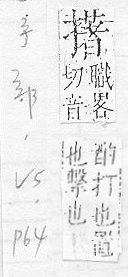 撯
職畧
切音
酌打也置
也擊也
手部,V5,P64